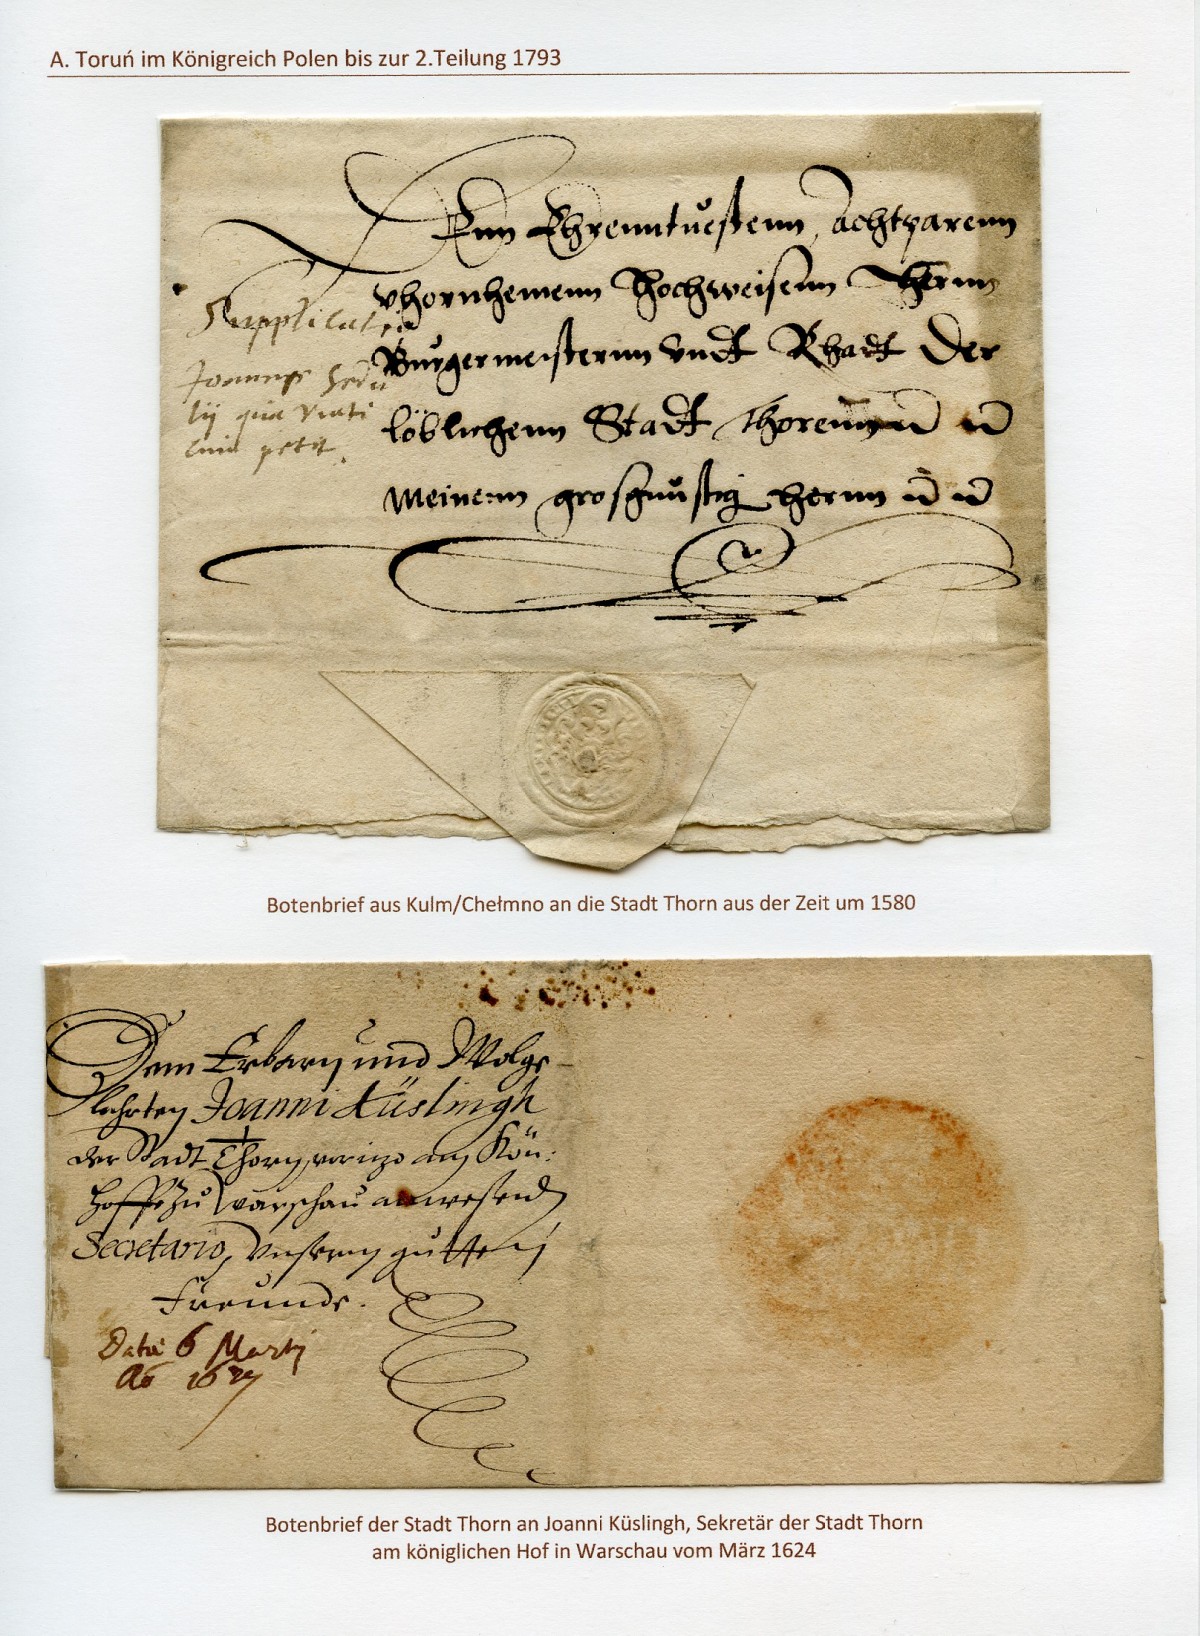 A. Toruń im Königreich Polen bis zur 2.Teilung 1793
Denn Ehrenntuestenn, Achtparenn
vhornhemenn Hochweisenn Hernn
Burgermeisternn Vndt Rhadt Der
löblichenn Stadt Thorenn
Meinenn grosgunstig hernn
Supplicatio
Joannis
petit.
Botenbrief aus Kulm/Chełmno an die Stadt Thorn aus der Zeit um 1580
Dem Erbarn und Wolge-
lahrten Joanni Küslingh
der Stadt Thorn, vorizo am Kön:
hoffe zu Warschau anwesend
Secretario, Unserm gutten
Freunde.
6 Martij
Ao
Botenbrief der Stadt Thorn an Joanni Küslingh, Sekretär der Stadt Thorn
am königlichen Hof in Warschau vom März 1624